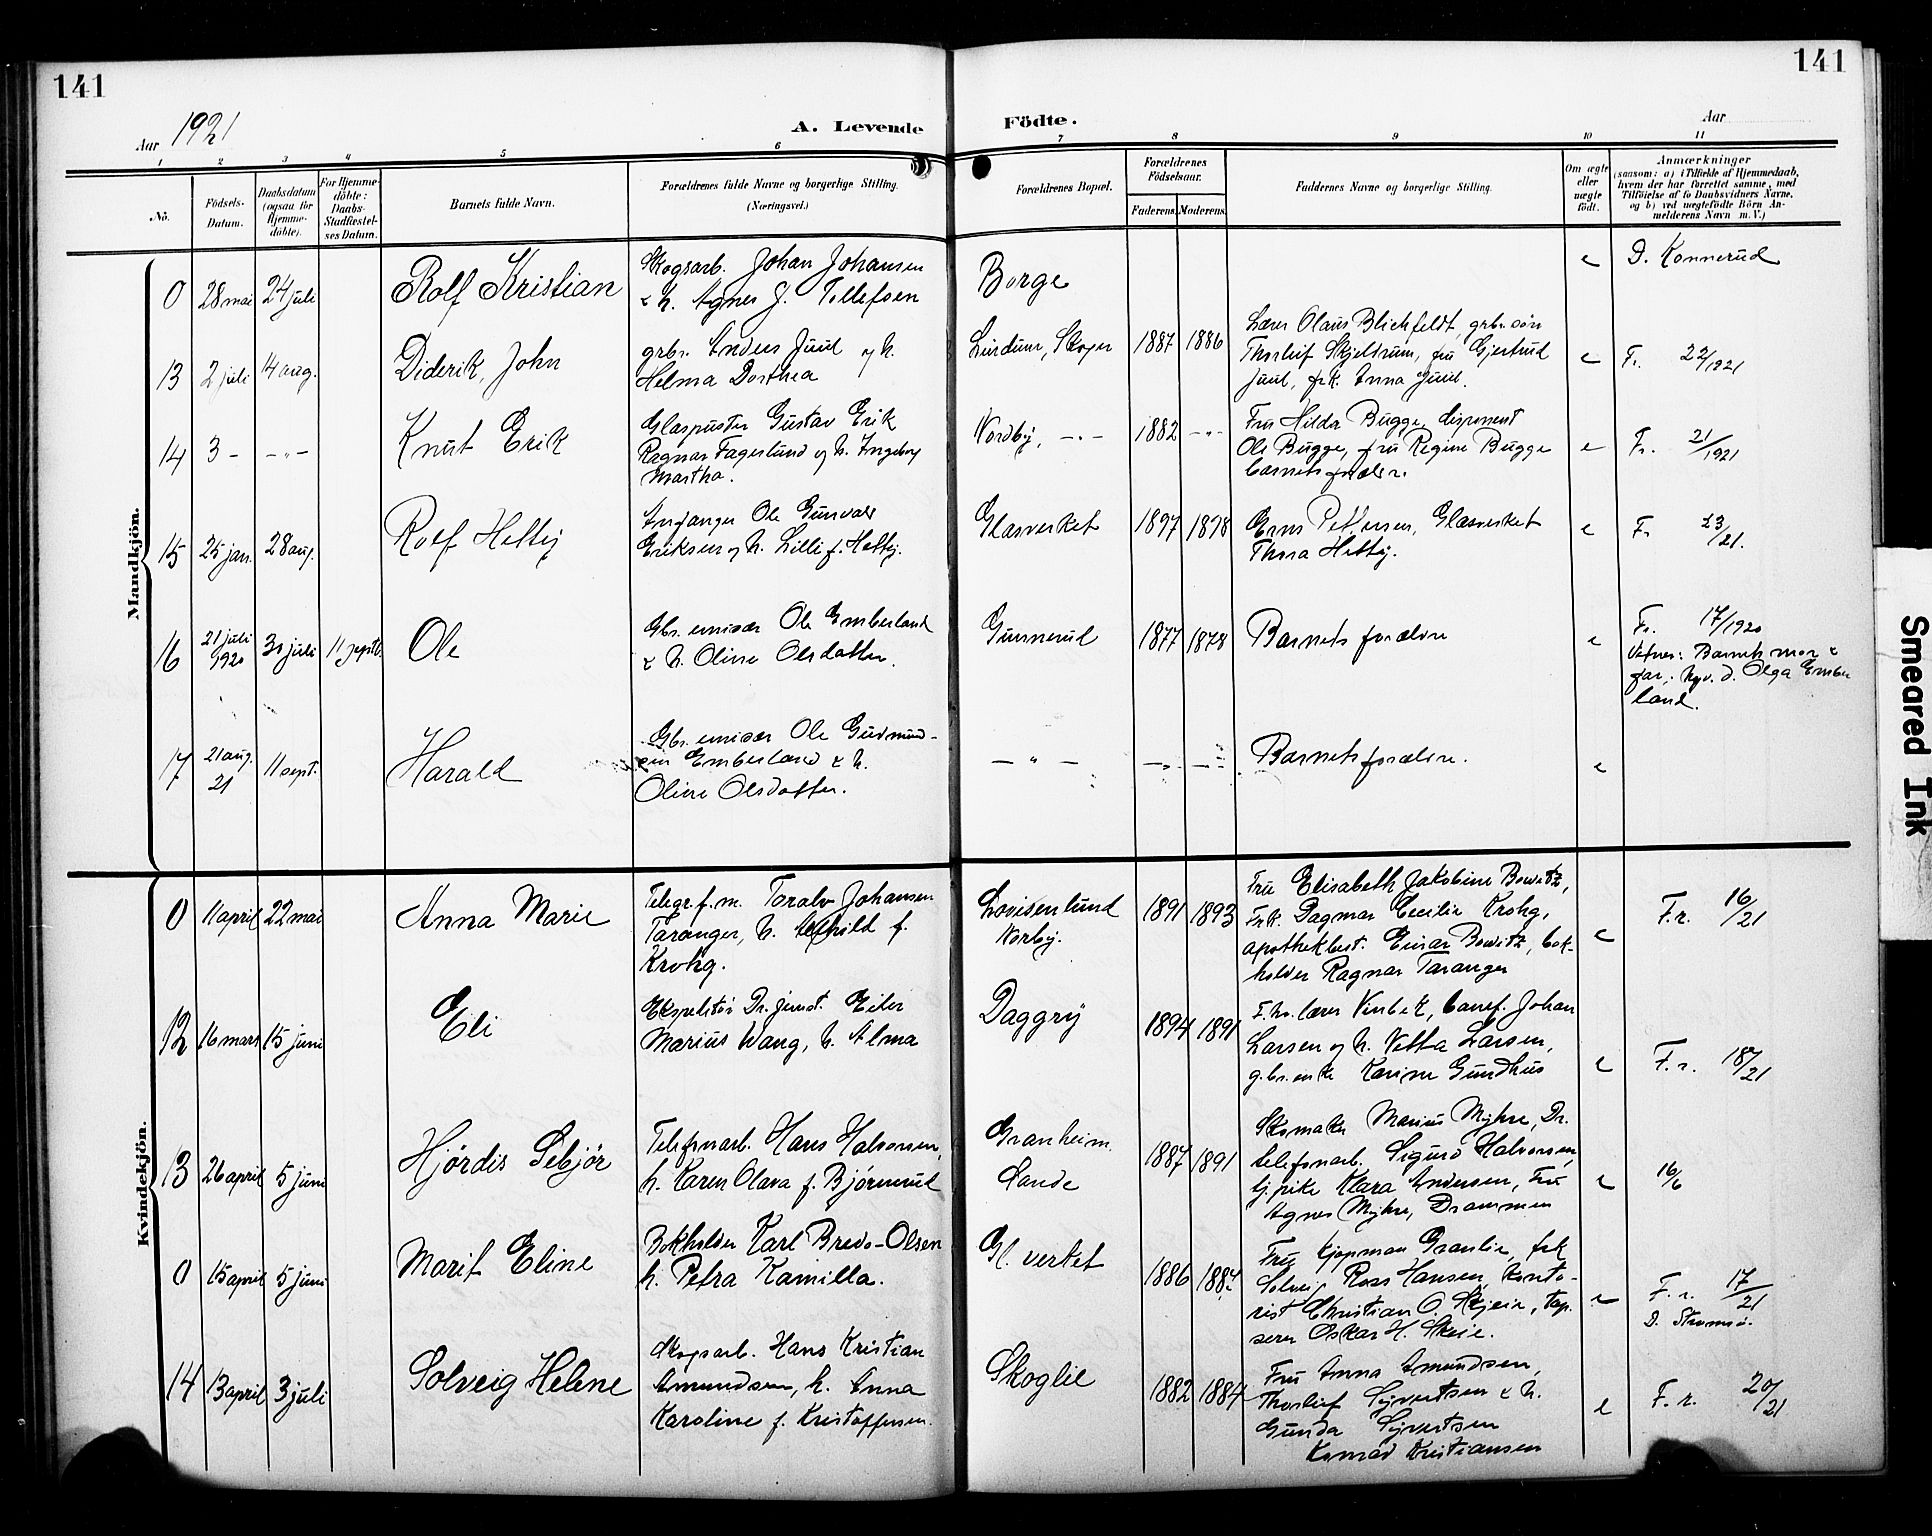 141
141
Aar 1921
A. Levende Födte.
Aar
1 2 3 4 5 6 7 8 9 10 11
No.
Födsels-Datum.
Daabsdatum (ogsaa för Hjemme-döbte).
For Hjemme-döbte: Daabs-Stadfæstel-ses Datum.
Barnets fulde Navn.
Forældrenes fulde Navne og borgerlige Stilling. (Næringsvei.)
Forældrenes Bopæl.
Forældrenes Födselsaar.
Faderens.
Moderens.
Faddernes Navne og borgerlige Stilling.
Om ægte eller uægte födt.
Anmærkninger
(saasom: a) i Tilfælde af Hjemmedaab,
hvem der har forrettet samme, med
Tilföielse af to Daabsvidners Navne,
og b) ved uægtefödte Börn An-
melderens Navn m. V.)
Mandkjön.
0 28 mai 24 juli Rolf Kristian
Skogsarb. Johan Johansen
& h. Agnes J. Tollefsen
Borge
e D. Konnerud
13 2 juli 14 aug. Diderik, John
grbr. Anders Juul og h.
Helma Dorthea
Lindum, Skoger 1887 1886
Lærer Olaus Blichfeldt, grbr. søn
Thorleif Skjeldrum, fru Gjertrud
Juul, frk. Anna Juul.
e Fr. 22/1921
14 3 – –"– Knut Erik
Glaspuster Gustav Erik
Ragnar Fagerlund og h. Ingeborg
Martha.
Nordby, –"– 1882 –"–
Fru Hilda Bugge, disponent
Ole Bugge, fru Regine Bugge
barnets forældre.
e Fr. 21/1921
15 25 jan. 28 aug. Rolf Heltij
Ole Gunvald
Eriksen og h. Lilli f. Heltij.
Glasverket 1897 1898
Pettersen, Glasverket
Thora Heltij.
e Fr. 23/21.
16 21 juli 1920 30 juli 11 septb. Ole
Gbr. emisær Ole Emberland
& h. Oline Olsdatter.
Gunnerud 1877 1878
Barnets forældre
e Fr. 17/1920
Vitner: Barnets mor &
far; Ngv. d. Olga Ember
land.
17 21 aug. 21 11 sept. Harald
Gbr. emisær Ole Gudmund-
sen Emberland & h.
Oline Olsdatter.
– " – –"– –"–
Barnets forældre.
e
Kvindekjön.
0 11 april 22 mai Anna Marie
Telegr.f.m. Toralv Johansen
Taranger, h. f.
Krohg.
Lovisenlund
Norby.
1891 1893
Fru Elisabeth Jakobine Bowitz,
Frk. Dagmar Cecilie Krohg,
apothekbest. Einar Bowitz, bok-
holder Ragnar Taranger
e F.r. 16/21
12 16 mars 15 juni Eli
Ekspeditør Dr. jernst. Eiler
Marius Wang, h. Alma
Daggry 1894 1891
F.hv. lærer Vinbek, banef. Johan
Larsen og h. Vetta Larsen,
g.br. enke Karine Gundhus
e F.r. 18/21
13 26 april 5 juni Hjördis Sebjör
Telefonarb. Hans Halvorsen,
h. Karen Olava f. Björnerud
Granheim
Sande
1887 1891
Skomaker Marius Myhre, Dr.
telefonarb. Sigurd Halvorsen,
tj.pike Klara Andersen, Fru
Agnes Myhre, Drammen
e 16/6
0 15 april 5 juni Marit Eline
Bokholder Karl Bredo-Olsen
h. Petra Kamilla.
Gl. verket 1886 1887
Fru kjøpman Granlie, frk
Solveig Roas Hansen, konto-
rist Christian O. Skjeie, tap-
serer Oskar H. Skeie.
e F.r. 17/21
D. Strømsö.
14 13 april 3 juli Solveig Helene
Skogsarb. Hans Kristian
Amundsen, h. Anna
Karoline f. Kristoffersen.
Skoglie 1882 1884
Fru Anna Amundsen,
Thorleif Syvertsen & h.
Gunda Syvertsen
Konrad Kristiansen
e F.r. 20/21
Smeared Ink